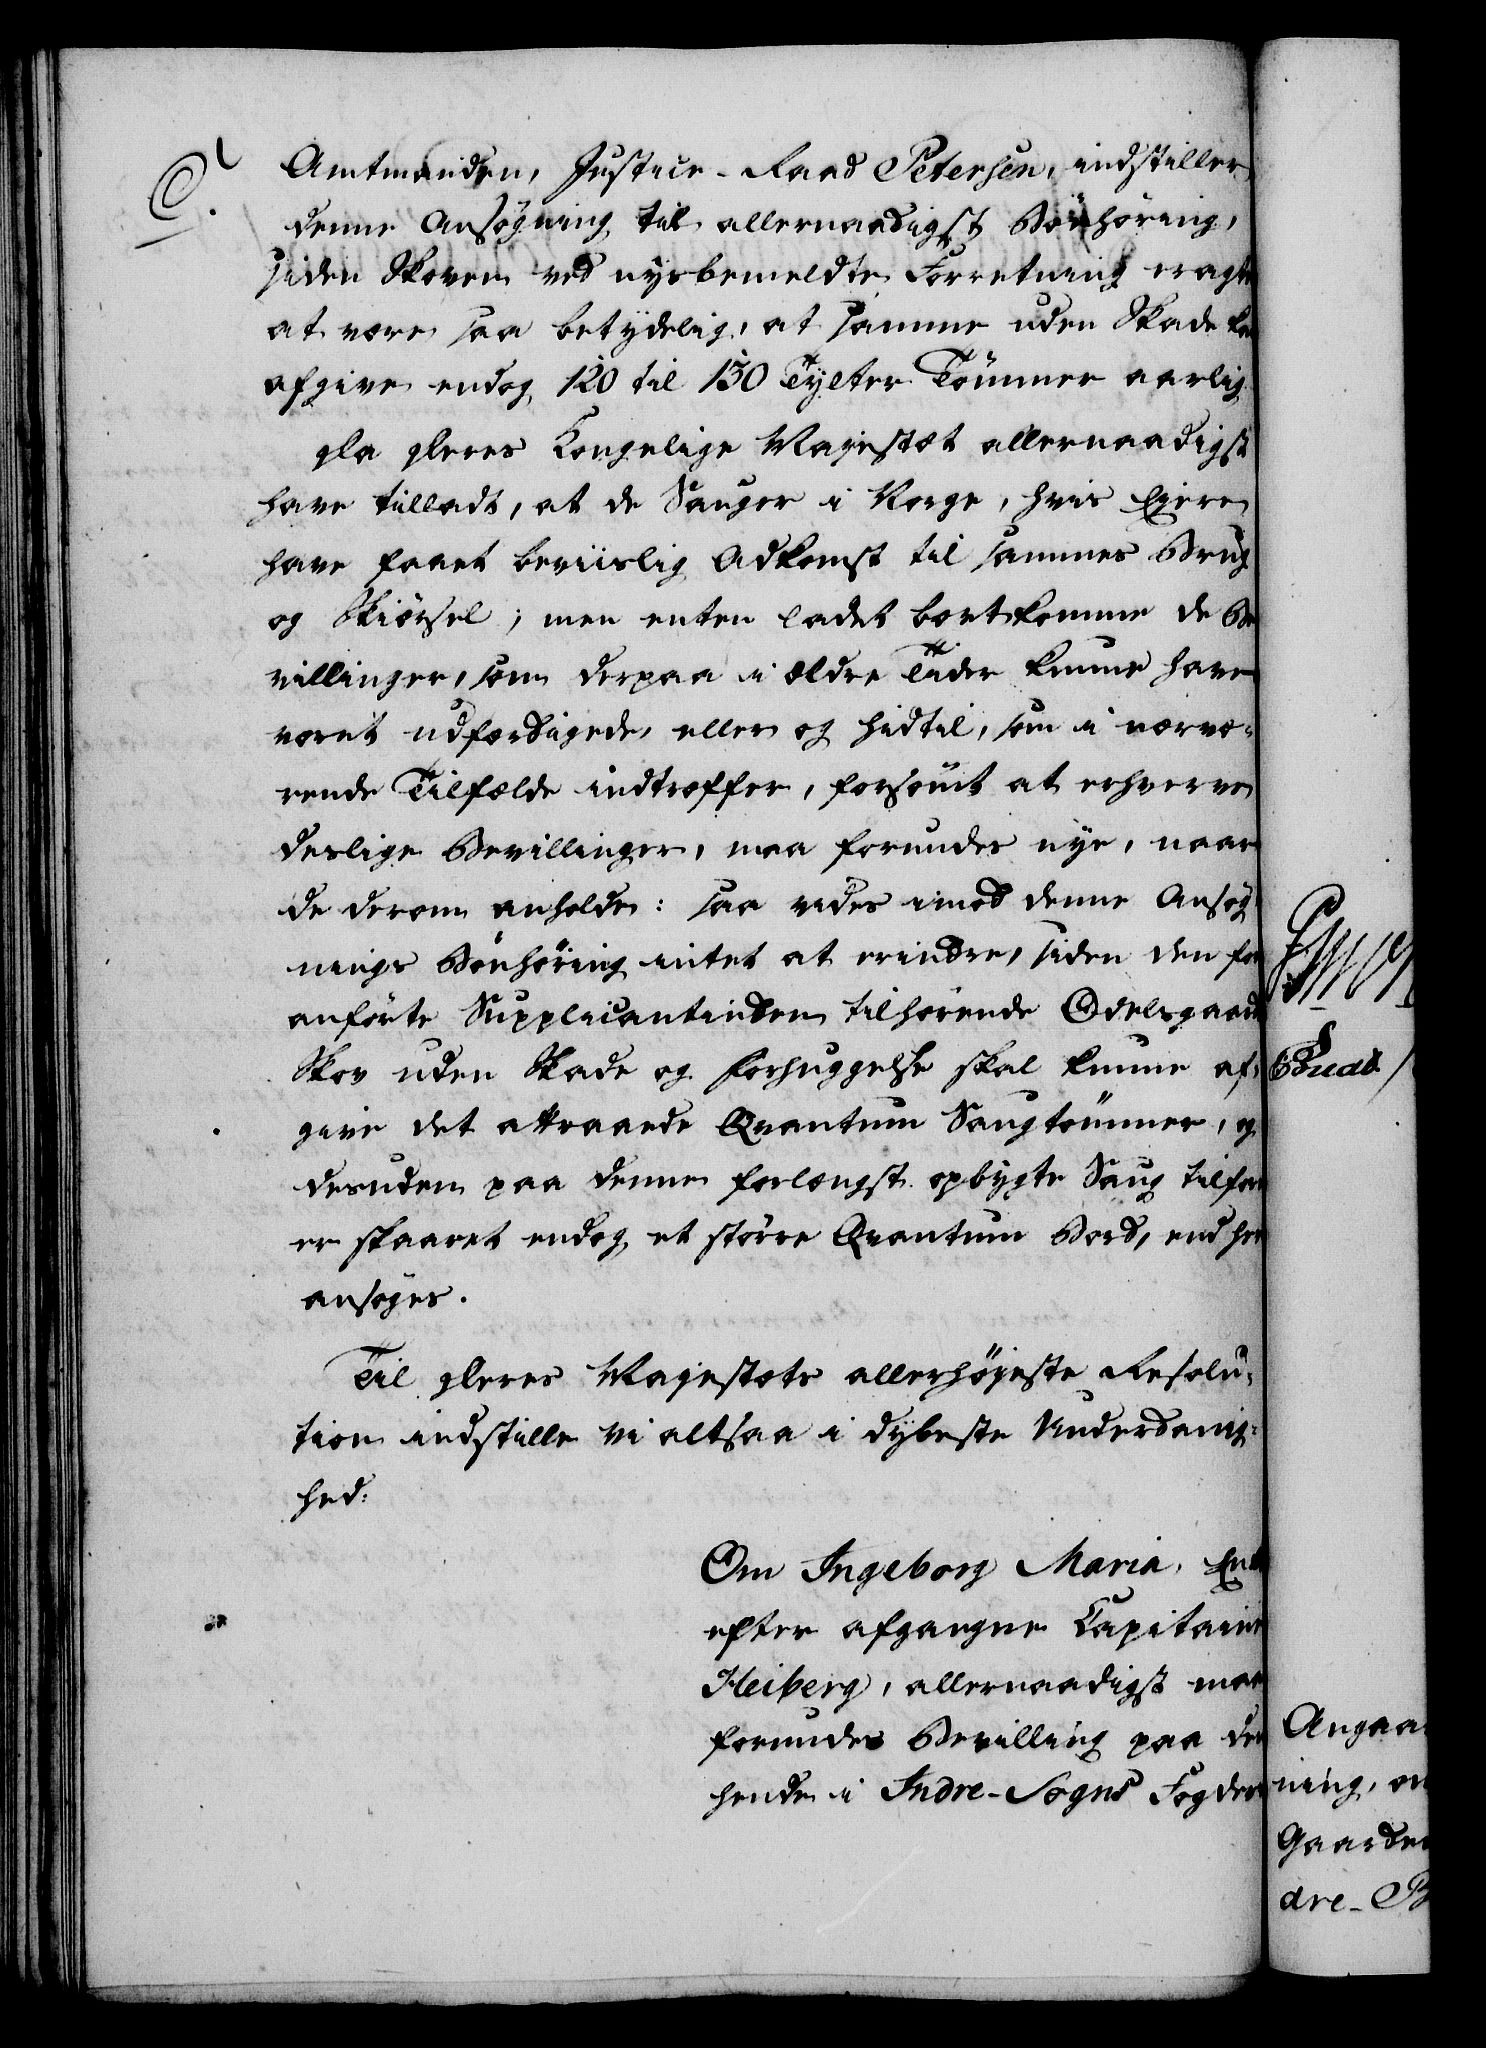 Amtmanden, Justice-Raad Petersen, indstiller
denne Ansøgning til allernaadigst Bönhöring,
siden Skoven ved nysbemeldte Forretning eragte
at være saa betydelig, at samme uden Skade ka
afgive endog 120 til 130 Tylter Tömmer aarlig
Da Deres Kongelige Majestæt allernaadigst
have tilladt, at de Sauger i Norge, hvis Ejere
have faaet beviislig Adkomst til sammes Brug
og Skiörsel; men enten ladet bortkomme de Be
villinger, som derpaa i ældre Tider kunne have
været udfærdigede, eller og hidtil, som i nærvæ-
rende Tilfælde indtræffer, forsömt at erhverve
deslige Bevillinger, maa forundes nye, naar
de derom anholde: saa vides imod denne Ansøg
nings Bönhöring intet at erindre, siden den for
anförte Supplicantinden tilhörende Odelsgaards
Skov uden Skade og Forhuggelse skal kunne af-
give det attraaede Qvantum Saugtömmer, og
desuden paa denne forlængst opbygte Saug tilforn
er skaaret endog et större Qvantum Bord, end her
ansøges.
Til Deres Majestæts allerhöjeste Resolu-
tion indstille vi altsaa i dybeste Underdanig-
hed:
Om Ingeborg Maria, Enke
efter afgangne Capitaine
Heiberg, allernaadigst maa
forundes Bevilling paa den
hende i Indre-Sogns Fogderi
Angaa
ning, om
Gaarden
dre-B